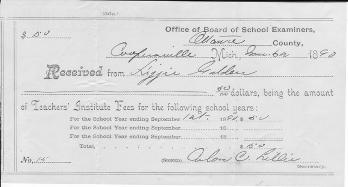 $ .50
Office of Board of School Examiners,
Ottawa County,
Coopersville Mich., 1890
Received from Lizzie
50/100 dollars, being the amount
of Teachers' Institute Fees for the following school years:
For the School Year ending September 1st. 1890, $ .50
For the School Year ending September 18
For the School Year ending September 18
Total, $ .50
No. 15
(SIGNED) Colon C. Lillie
Secretary.